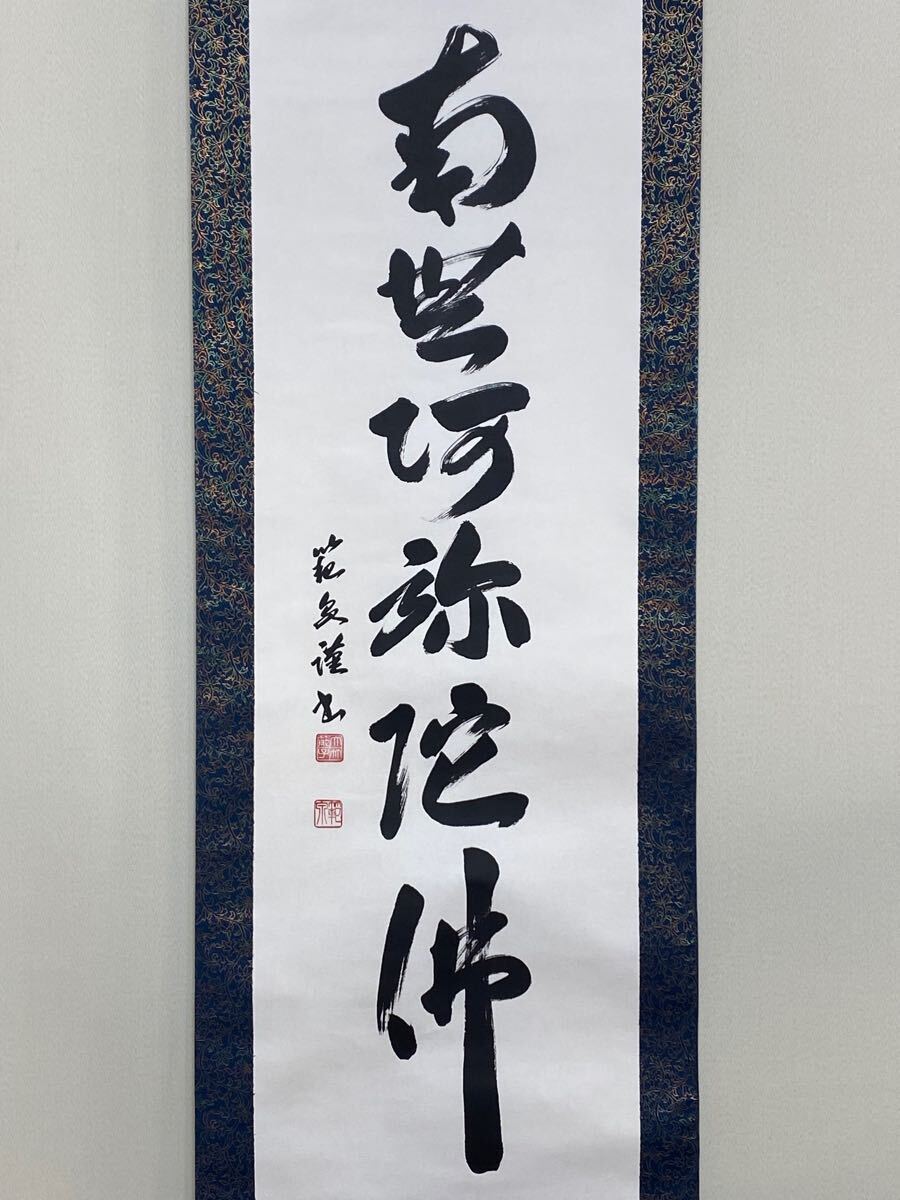 南無阿弥陀佛
範空謹書